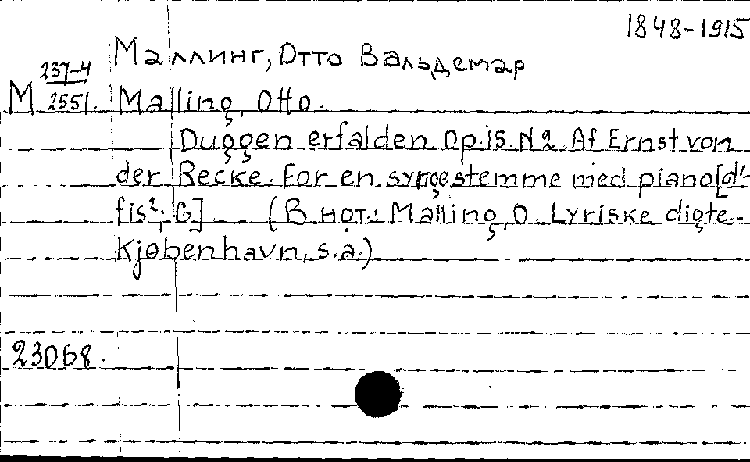 1848-1915
Маллинг, Отто Вальдемар
M 237-4
2551. Malling, Otto.
Duggen erfalden. Op. 15. N 2. Af Ernst von
der Recke. For en syngestemme med piano [d'-
fis²; G] (В нот.: Malling, O. Lyriske digte.
Kjøbenhavn, s.a.)
23068.